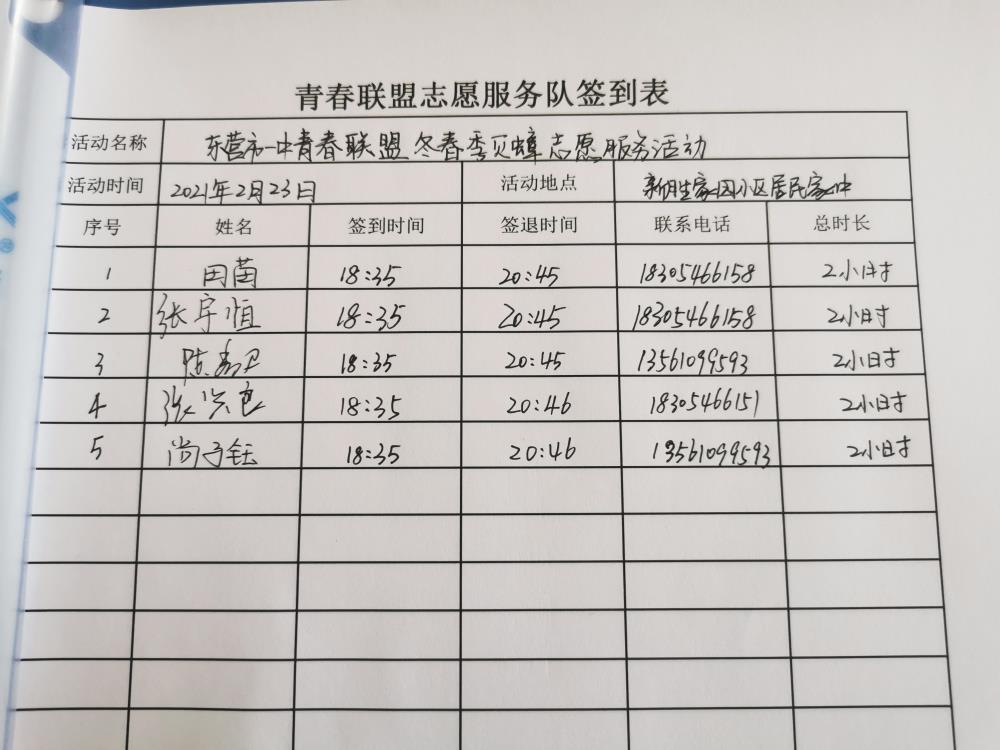 青春联盟志愿服务队签到表
活动名称 东营市一中青春联盟冬春季灭蟑志愿服务活动
活动时间 2021年2月23日 活动地点 家园小区居民家中
序号 姓名 签到时间 签退时间 联系电话 总时长
1 田苗 18:35 20:45 18305466158 2小时
2 张宇恒 18:35 20:45 18305466158 2小时
3 陈秀卫 18:35 20:45 13561099593 2小时
4 张 18:35 20:46 18305466151 2小时
5 尚子钰 18:35 20:46 13561099593 2小时